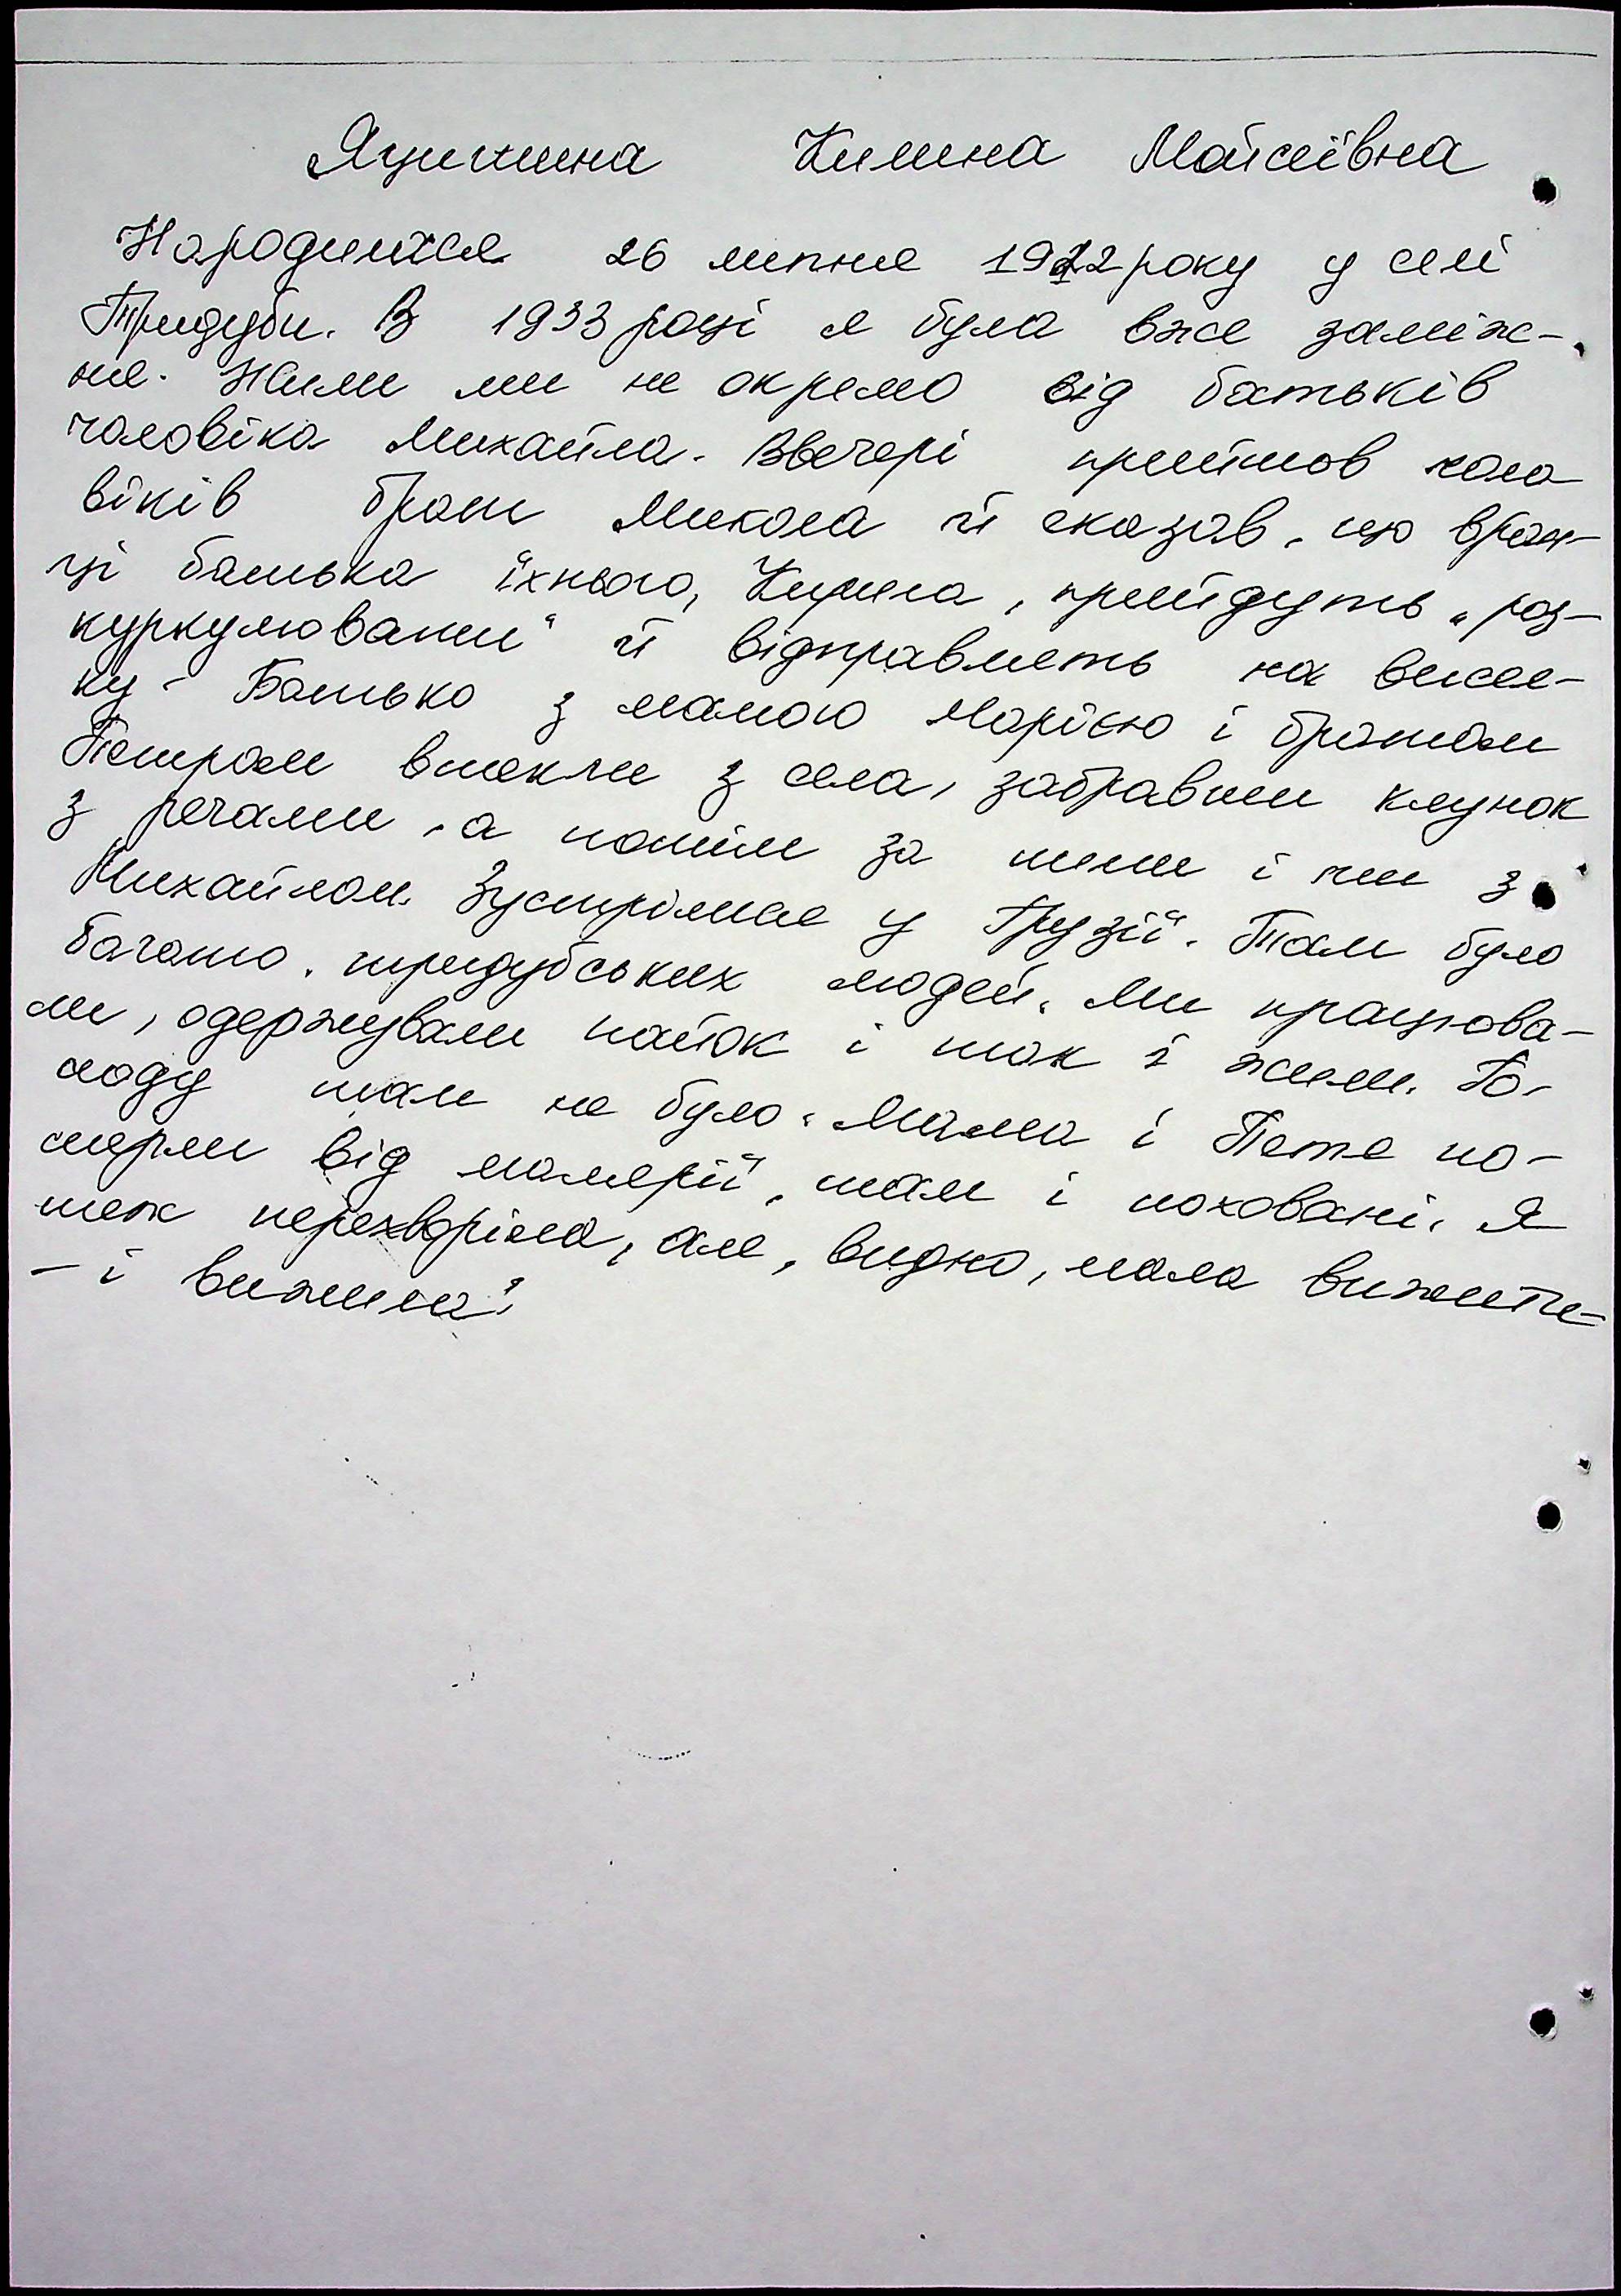 Яцишина Килина Мойсеївна
Народилася 26 липня 1912 року у селі
Тридуби. В 1933 році я була вже заміж-
ня. Жили ми не окремо від батьків
чоловіка Михайла. Ввечері прийшов чоло
віків брат Микола й сказав, що вран-
ці батька їхнього, Кирила, прийдуть „роз-
куркулювати“ й відправлять на висил-
ку. Батько з мамою Марією і братом
Петром втекли з села, забравши клунок
з речами, а потім за ними і ми з
Михайлом. Зустрілися у Грузії. Там було
багато тридубських людей. Ми працюва-
ли, одержували пайок і так і жили. Го-
лоду там не було. Мама і Петя по-
мерли від малярії, там і поховані. Я
теж перехворіла, але, видно, мала вижити-
- і вижила.